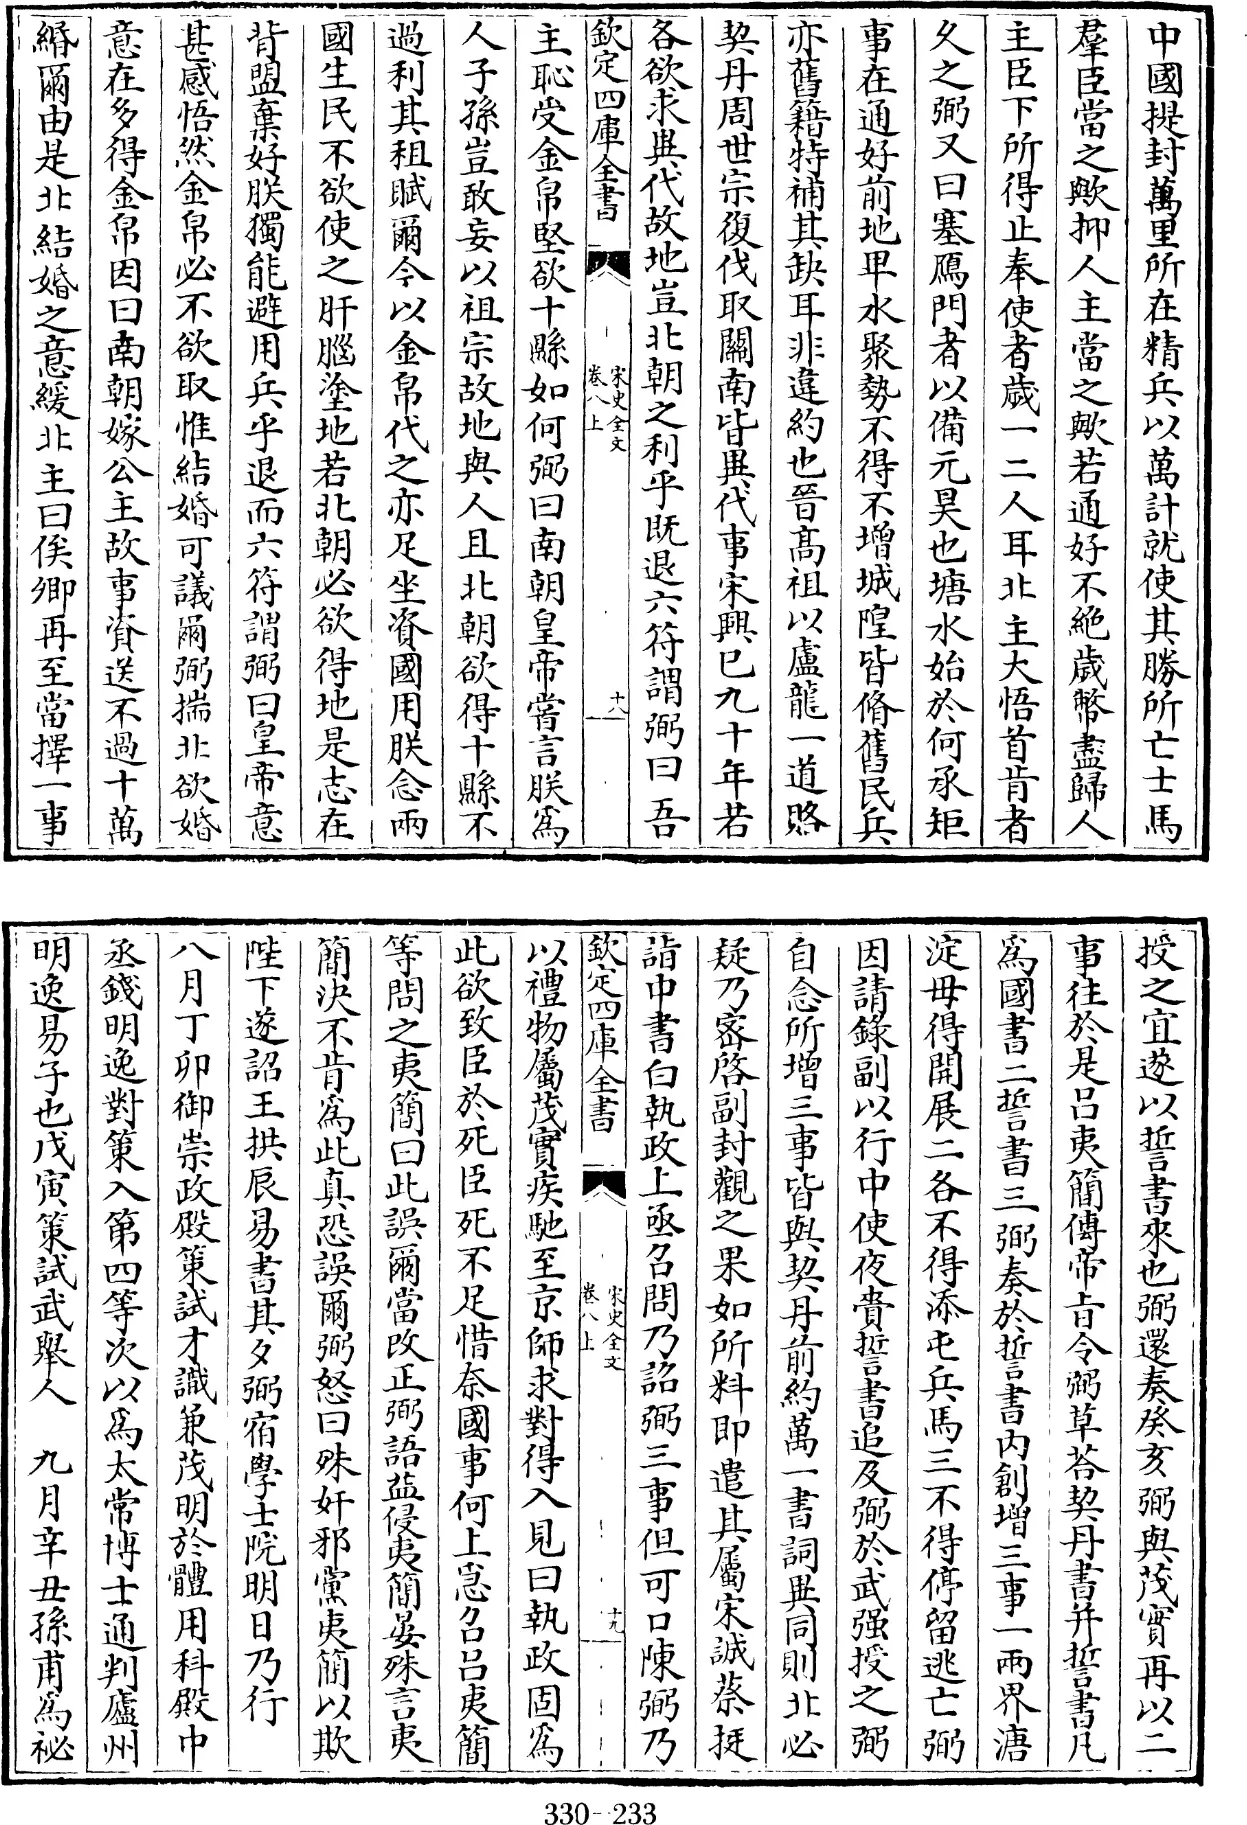 中國提封萬里所在精兵以萬計就使其勝所亡士馬
羣臣當之歟抑人主當之歟若通好不絶歳幣盡歸人
主臣下所得止奉使者歳一二人耳北主大悟首肯者
乆之弼又曰塞鴈門者以備元昊也塘水始於何承矩
事在通好前地卑水聚勢不得不增城隍皆脩舊民兵
亦舊籍特補其缺耳非違約也晉髙祖以盧龍一道賂
契丹周世宗復伐取關南皆異代事宋興已九十年若
各欲求異代故地豈北朝之利乎既退六符謂弼曰吾
欽定四庫全書
宋史全文
卷八上
十八
主恥受金帛堅欲十縣如何弼曰南朝皇帝嘗言朕為
人子孫豈敢妄以祖宗故地與人且北朝欲得十縣不
過利其租賦爾今以金帛代之亦足坐資國用朕念兩
國生民不欲使之肝腦塗地若北朝必欲得地是志在
背盟棄好朕獨能避用兵乎退而六符謂弼曰皇帝意
甚感悟然金帛必不欲取惟結婚可議爾弼揣北欲婚
意在多得金帛因曰南朝嫁公主故事資送不過十萬
緡爾由是北結婚之意緩北主曰俟卿再至當擇一事
授之宜遂以誓書來也弼還奏癸亥弼與茂實再以二
事往於是吕夷簡傳帝㫖令弼草荅契丹書并誓書凡
為國書二誓書三弼奏於誓書内創增三事一兩界溏
淀毋得開展二各不得添屯兵馬三不得停留逃亡弼
因請錄副以行中使夜賫誓書追及弼於武强授之弼
自念所增三事皆與契丹前約萬一書詞異同則北必
疑乃宻啓副封觀之果如所料即遣其屬宋誠蔡挺
詣中書白執政上亟召問乃詔弼三事但可口陳弼乃
欽定四庫全書
宋史全文
卷八上
十九
以禮物屬茂實疾馳至京師求對得入見曰執政固為
此欲致臣於死臣死不足惜奈國事何上急召吕夷簡
等問之夷簡曰此誤爾當改正弼語益侵夷簡晏殊言夷
簡決不肯為此真恐誤爾弼怒曰殊奸邪黨夷簡以欺
陛下遂詔王拱辰易書其夕弼宿學士院明日乃行
八月丁卯御崇政殿策試才識兼茂明於體用科殿中
丞錢明逸對策入第四等次以為太常博士通判廬州
明逸易子也戊寅策試武舉人　九月辛丑孫甫為祕
330-233